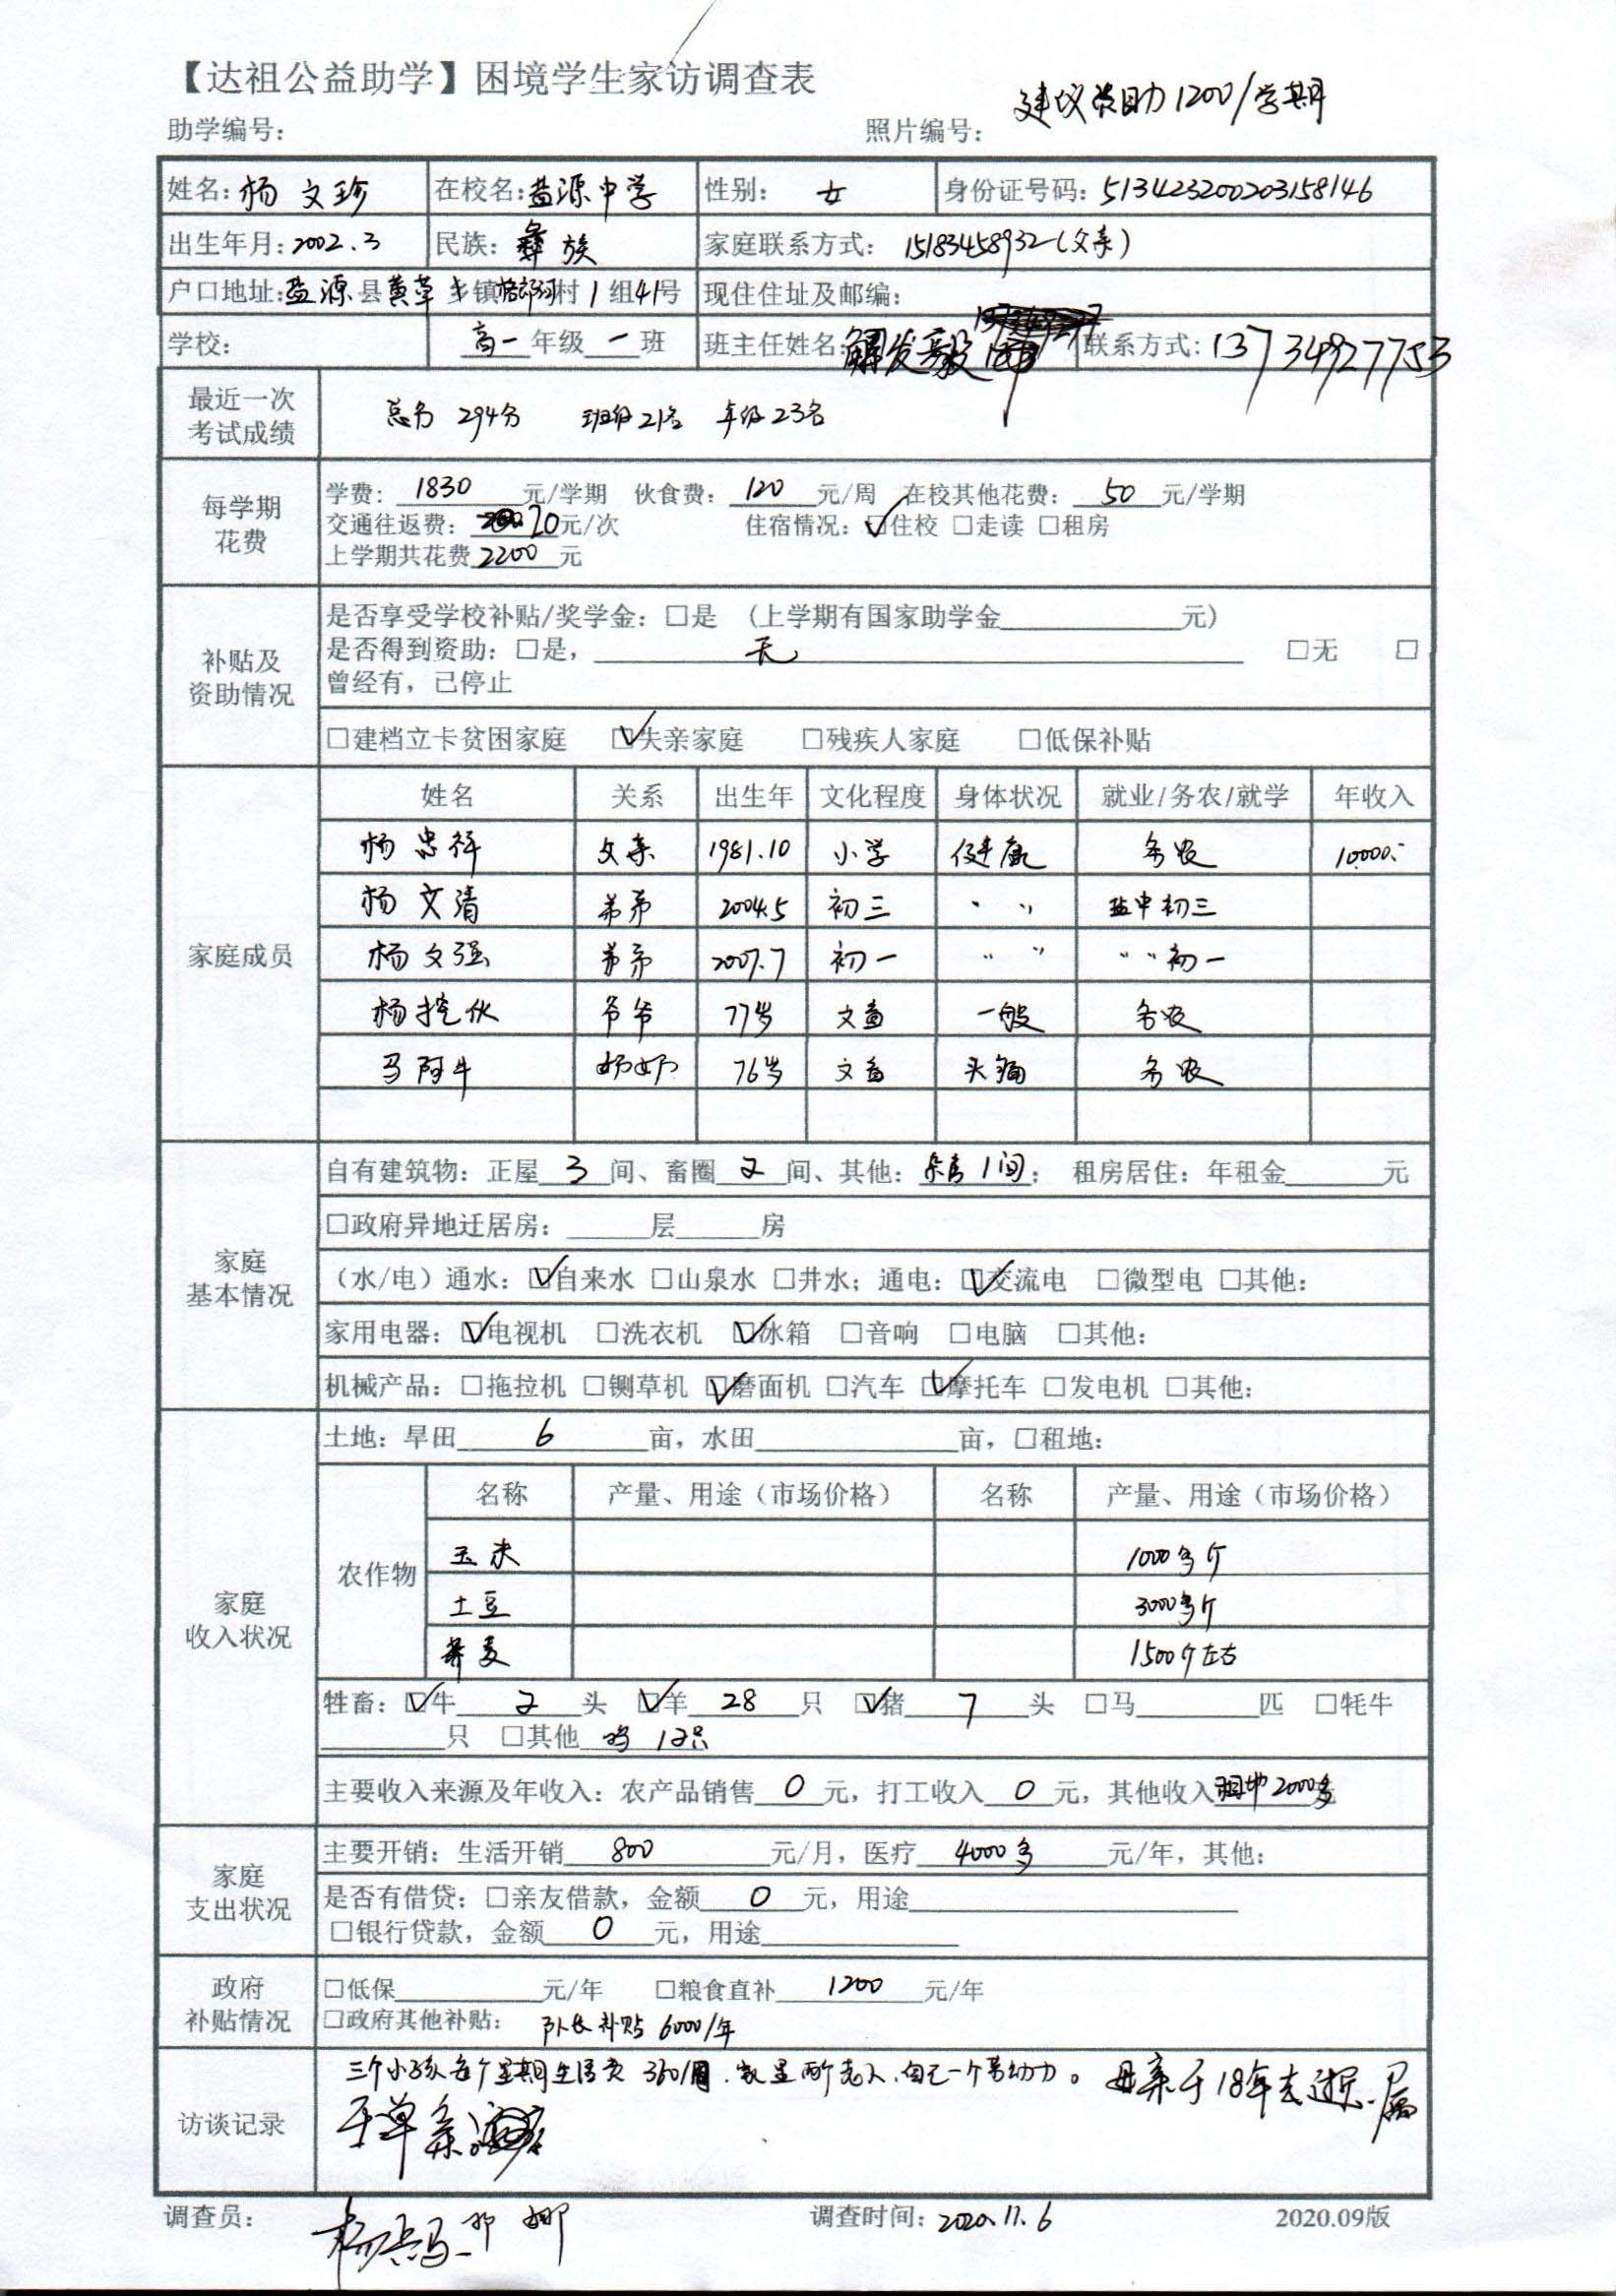 【达祖公益助学】困境学生家访调查表
建议资助1200/学期
助学编号： 照片编号：
姓名：杨文珍 在校名：盐源中学 性别：女 身份证号码：513423200203158146
出生年月：2002.3 民族：彝族 家庭联系方式：15183458932（父亲）
户口地址：盐源县黄草乡镇村1组41号 现住住址及邮编：
学校： 高一年级一班 班主任姓名：解发毅 联系方式：13734927753
最近一次考试成绩 总分 294分 班级21名 年级23名
每学期花费 学费：1830元/学期 伙食费：120元/周 在校其他花费：50元/学期
交通往返费：20元/次 住宿情况：☑住校 □走读 □租房
上学期共花费2200元
补贴及资助情况 是否享受学校补贴/奖学金：□是 （上学期有国家助学金 元）
是否得到资助：□是，无 □无 □
曾经有，已停止
□建档立卡贫困家庭 ☑失亲家庭 □残疾人家庭 □低保补贴
家庭成员 姓名 关系 出生年 文化程度 身体状况 就业/务农/就学 年收入
杨忠祥 父亲 1981.10 小学 健康 务农 10000.-
杨文清 弟弟 2004.5 初三 〃 盐中初三
杨文强 弟弟 2007.7 初一 〃 〃初一
杨挖伙 爷爷 77岁 文盲 一般 务农
马阿牛 奶奶 76岁 文盲 头痛 务农
家庭基本情况 自有建筑物：正屋3间、畜圈2间、其他：杂房1间； 租房居住：年租金 元
□政府异地迁居房： 层 房
（水/电）通水：☑自来水 □山泉水 □井水；通电：☑交流电 □微型电 □其他：
家用电器：☑电视机 □洗衣机 ☑冰箱 □音响 □电脑 □其他：
机械产品：□拖拉机 □铡草机 ☑磨面机 □汽车 ☑摩托车 □发电机 □其他：
家庭收入状况 土地：旱田6亩，水田 亩，□租地：
农作物 名称 产量、用途（市场价格） 名称 产量、用途（市场价格）
玉米 1000多斤
土豆 3000多斤
荞麦 1500斤左右
牲畜：☑牛2头 ☑羊28只 ☑猪7头 □马 匹 □牦牛
只 □其他 鸡12只
主要收入来源及年收入：农产品销售0元，打工收入0元，其他收入 2000多
家庭支出状况 主要开销：生活开销800元/月，医疗4000多元/年，其他：
是否有借贷：□亲友借款，金额0元，用途
□银行贷款，金额0元，用途
政府补贴情况 □低保 元/年 □粮食直补1200元/年
□政府其他补贴： 队长补贴 6000/年
访谈记录 三个小孩每个星期生活费 360/周，家里两个老人，自己一个劳动力。母亲于18年去逝，属
于单亲
调查员： 调查时间：2020.11.6 2020.09版